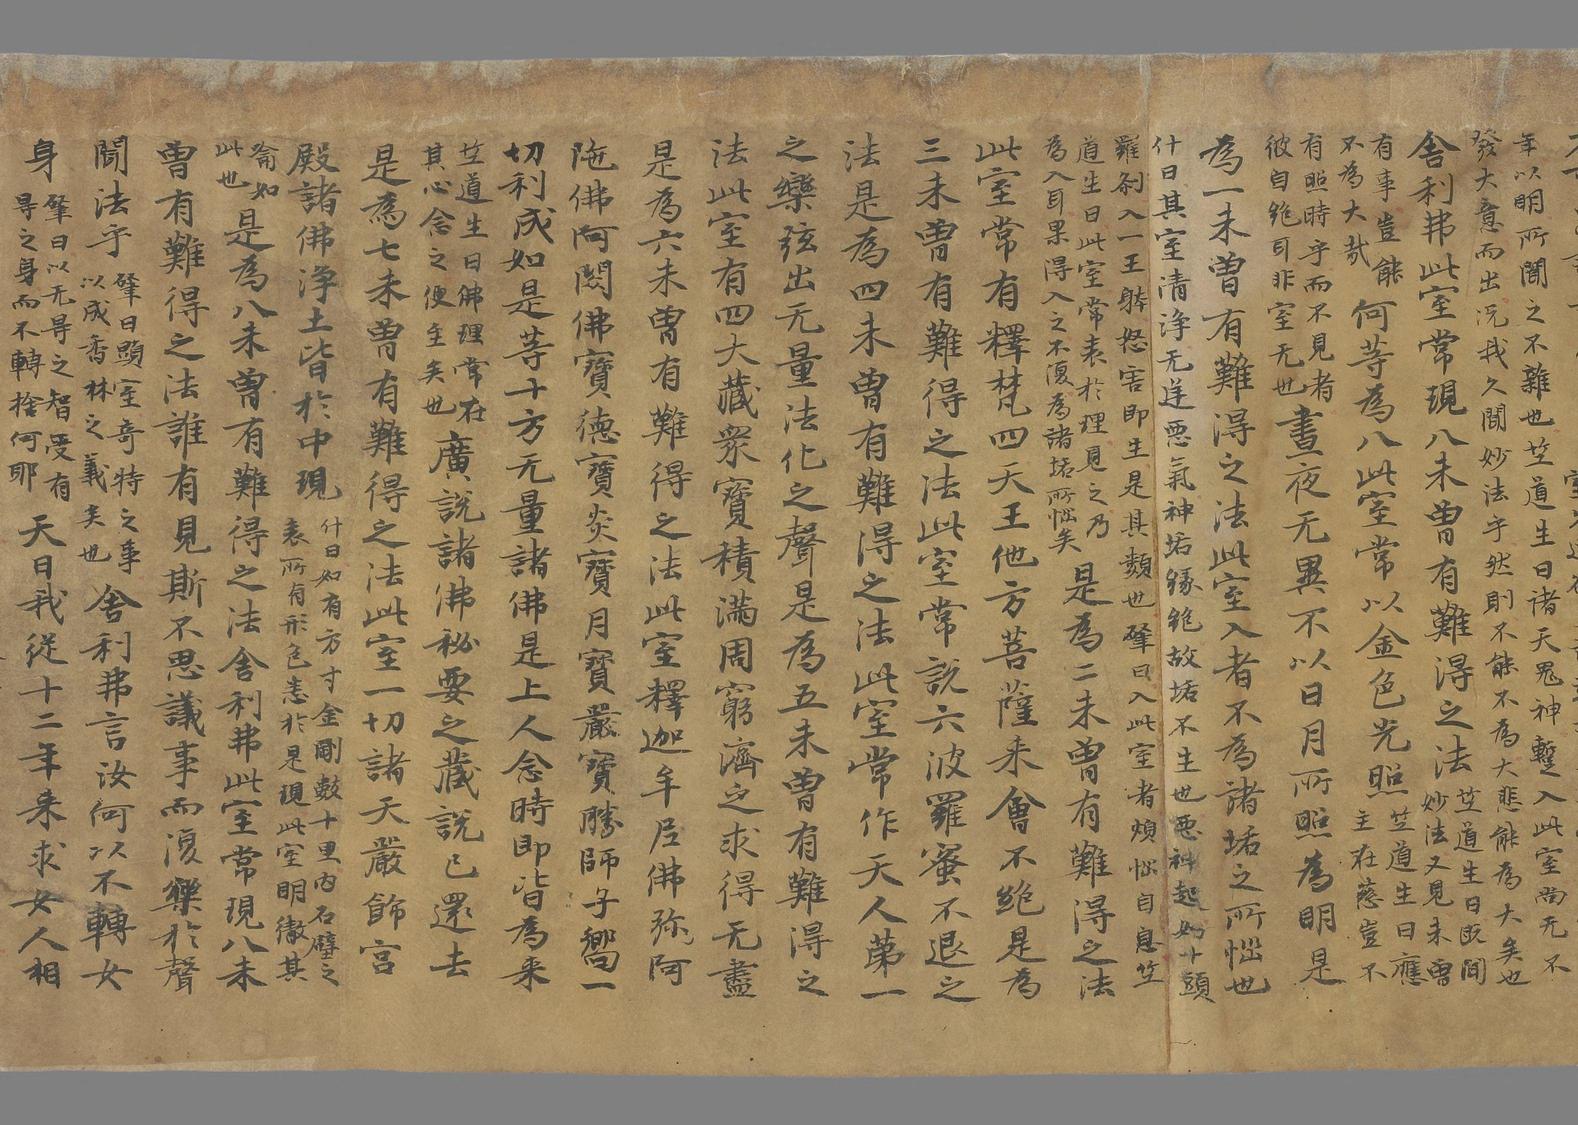 年以明所闻之不雜也竺道生曰諸天鬼神蹔入此室尚无不
發大意而出况我久聞妙法乎然則不能不為大悲能為大矣也
舍利弗此室常現八未曾有難得之法竺道生曰既聞
妙法又見未曾
有事豈能
不為大哉何等為八此室常以金色光照竺道生曰應
主在慈豈不
有照時乎而不見者
彼自絶耳非室无也晝夜无異不以日月所照為明是
為一未曾有難得之法此室入者不為諸垢之所惱也
什曰其室清淨无逆惡氣神垢緣絶故垢不生也惡神起如十頭
羅剎入一王躰怒害即生是其類也肇曰入此室者煩惱自息竺
道生曰此室常表於理見之乃
為入耳果得入之不復為諸垢所惱矣是為二未曾有難得之法
此室常有釋梵四天王他方菩薩来會不絶是為
三未曾有難得之法此室常説六波羅蜜不退之
法是為四未曾有難得之法此室常作天人苐一
之樂弦出无量法化之聲是為五未曾有難得之
法此室有四大藏衆寶積滿周窮濟之求得无盡
是為六未曾有難得之法此室釋迦牟尼佛弥阿
陁佛阿閦佛寶德寶炎寶月寶嚴寶勝師子響一
切利成如是等十方无量諸佛是上人念時即皆為来
竺道生曰佛理常在
其心念之便至矣也廣説諸佛秘要之藏説已還去
是為七未曾有難得之法此室一切諸天嚴飾宮
殿諸佛淨土皆於中現什曰如有方寸金剛數十里内石壁之
表所有形色悉於是現此室明徹其
喻如
此也是為八未曾有難得之法舍利弗此室常現八未
曾有難得之法誰有見斯不思議事而復樂於聲
聞法乎肇曰顯室奇特之事
以成香林之義矣也舍利弗言汝何以不轉女
身肇曰以无㝵之智受有
㝵之身而不轉捨何耶天曰我從十二年来求女人相